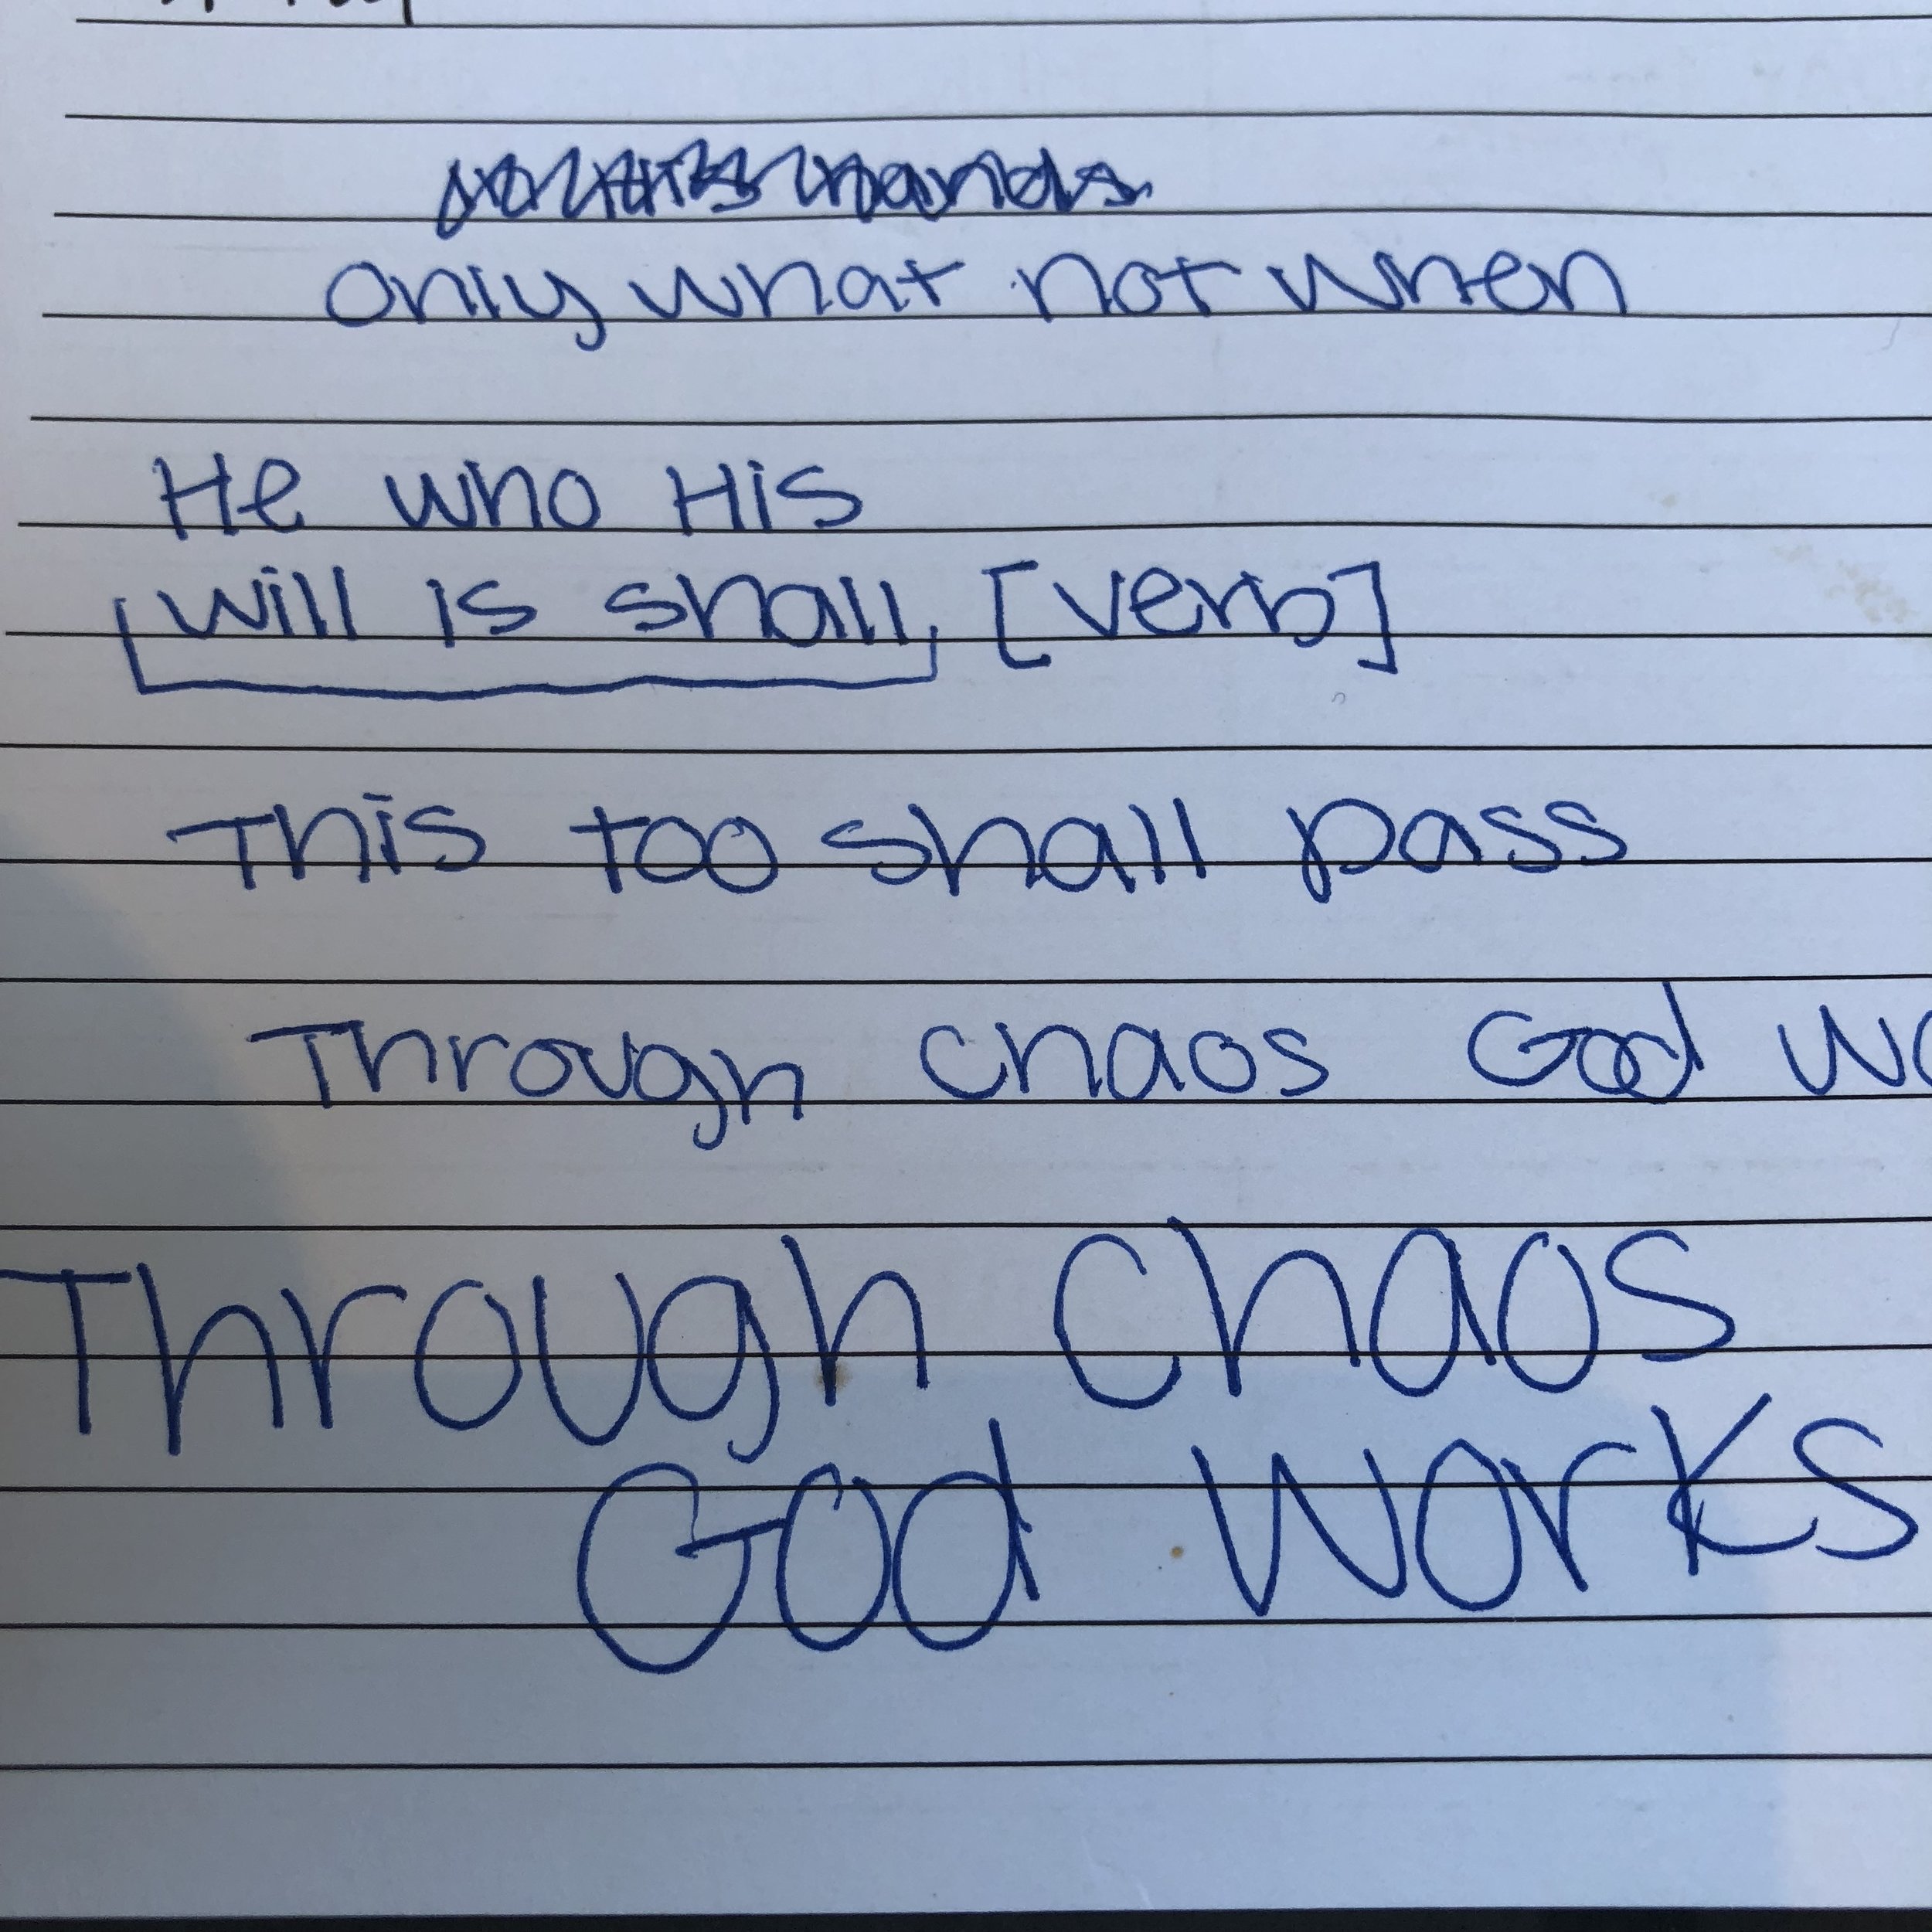 only what not when
He who His
will is shall, [verb]
This too shall pass
Through chaos God
Through chaos
God works